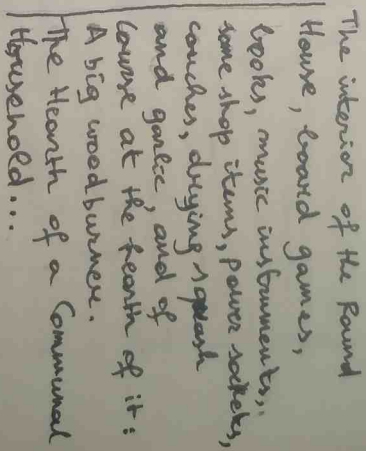 The interior of the Round
House, board games,
books, music instruments,
some shop items, power sockets,
couches, drying squash
and garlic, and of
course at the hearth of it:
A big woodburner.
The Hearth of a Communal
Household...